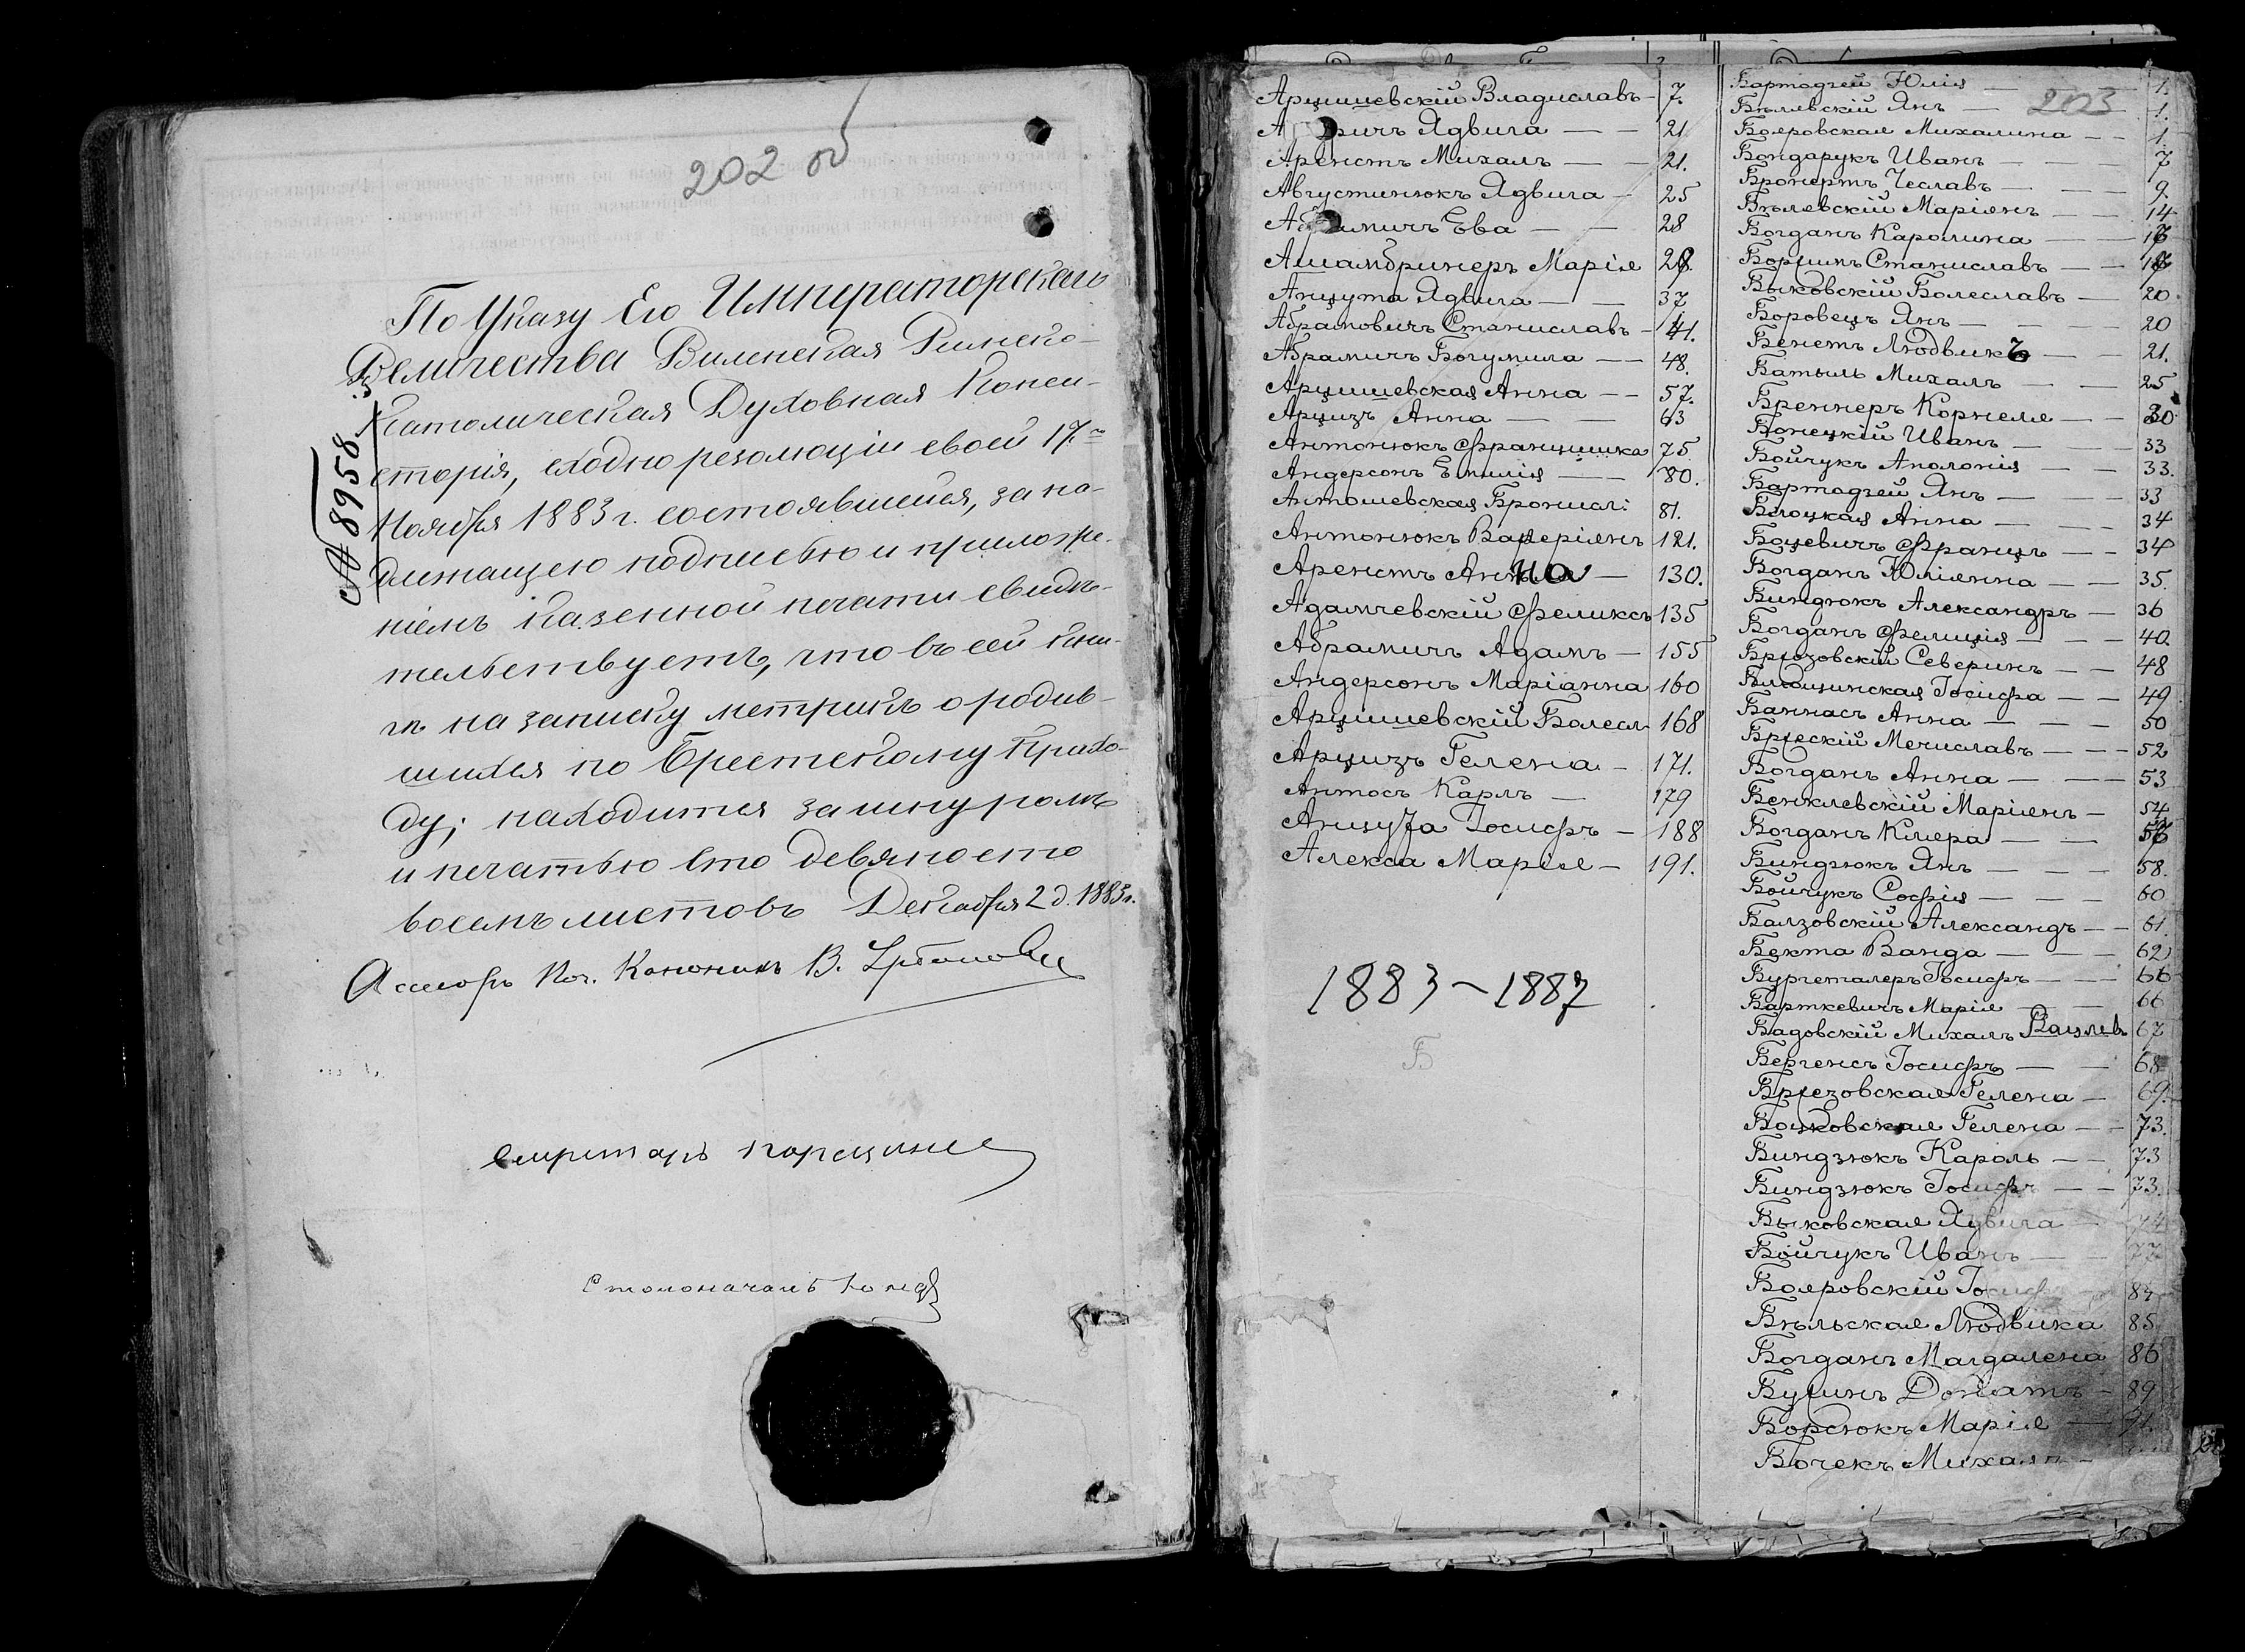 202 об
По Указу Его Императорскаго
Величества Виленская Римско-
Католическая Духовная Конси-
сторія, сходно резолюціи своей 17го
Ноября 1883 г. состоявшейся, за на-
длежащею подписью и приложе-
ніемъ казенной печати свидѣ-
тельствуетъ, что въ сей кни-
гѣ на записку метрикъ о родив-
шихся по Брестскому прихо-
ду, находится за шнуромъ
и печатью сто девяносто
восемь листовъ Декабря 2 д. 1883 г.
№ 8958.
Ассесоръ Поч. Каноникъ В.
Секретарь
203
Арцишевскій Владиславъ — 7.
Ядвига — — 21
Аренстъ Михалъ — — 21.
Августинюкъ Ядвига — 25
Абрамичъ Ева — — 28
Ашамбринеръ Марія 28.
Анцута Ядвига — — 37
Абрамовичъ Станиславъ — 41.
Абрамичъ Богумила — — 48.
Арцишевская Анна — — 57.
Арцизъ Анна — — 63
Антонюкъ Францишка 75
Андерсонъ Емилія — — 80.
Антошевская Брониcл: 81.
Антонюкъ Валеріянъ 121.
Аренстъ Анна — 130.
Адамчевскій Феликсъ 135
Абрамичъ Адамъ — 155
Андерсонъ Маріанна 160
Арцишевскій Болесл 168
Арцизъ Гелена — 171.
Антосъ Карлъ — 179
Анцута Іосифъ — 188
Алекса Марія — 191.
1883 - 1887
Б
Бартодзей Юлія — — 1.
Бѣлевскій Янъ — — 1.
Бояровская Михалина — — 1
Бондарукъ Иванъ — — 7
Бронертъ Чеславъ — — 9.
Бѣлевскій Маріянъ — — 14
Богданъ Каролина — — 16
Станиславъ — —
Быковскій Болеславъ — 20.
Боровецъ Янъ — — — 20
Бенетъ Людвикъ — — 21.
Батыль Михалъ — — 25
Бреннеръ Корнеля — — 30
Бонецкій Иванъ — — 33
Бойчукъ Аполонія — — 33.
Бартодзей Янъ — — — 33
Блоцкая Анна — — — 34
Боцевичъ Францъ — — 34
Богданъ Юліянна — — 35.
Биндзюкъ Александръ — 36
Богданъ Фелиція — — — 40
Брюзовскій Северинъ — — 48
Іосифа — — 49
Баннасъ Анна — — — 50
Брѣскій Мечиславъ — — — 52
Богданъ Анна — — — 53
Бенклевскій Маріянъ — 54
Богданъ Клера — — 56
Биндзюкъ Янъ — — — 58.
Бойчукъ Софія — — — 60
Балзовскій Александъ — — 61.
Бекта Ванда — — — 62
Бургеталеръ Іосифъ — — — 66
Барткевичъ Марія — — 66
Бадовскій Михалъ Вацлавъ 67
Бергенсъ Іосифъ — — 68
Брѣзовская Гелена — 69.
Гелена — — 73.
Биндзюкъ Кароль — — 73
Биндзюкъ Іосифъ — — 73.
Быковская Ядвига — 74
Бойчукъ Иванъ — — 77
Бояровскій Іосифъ — 84
Бѣльская Людвика 85
Богданъ Магдалена 86
Донатъ — 89
Борсюкъ Марія — 91.
Бочекъ Михалъ —